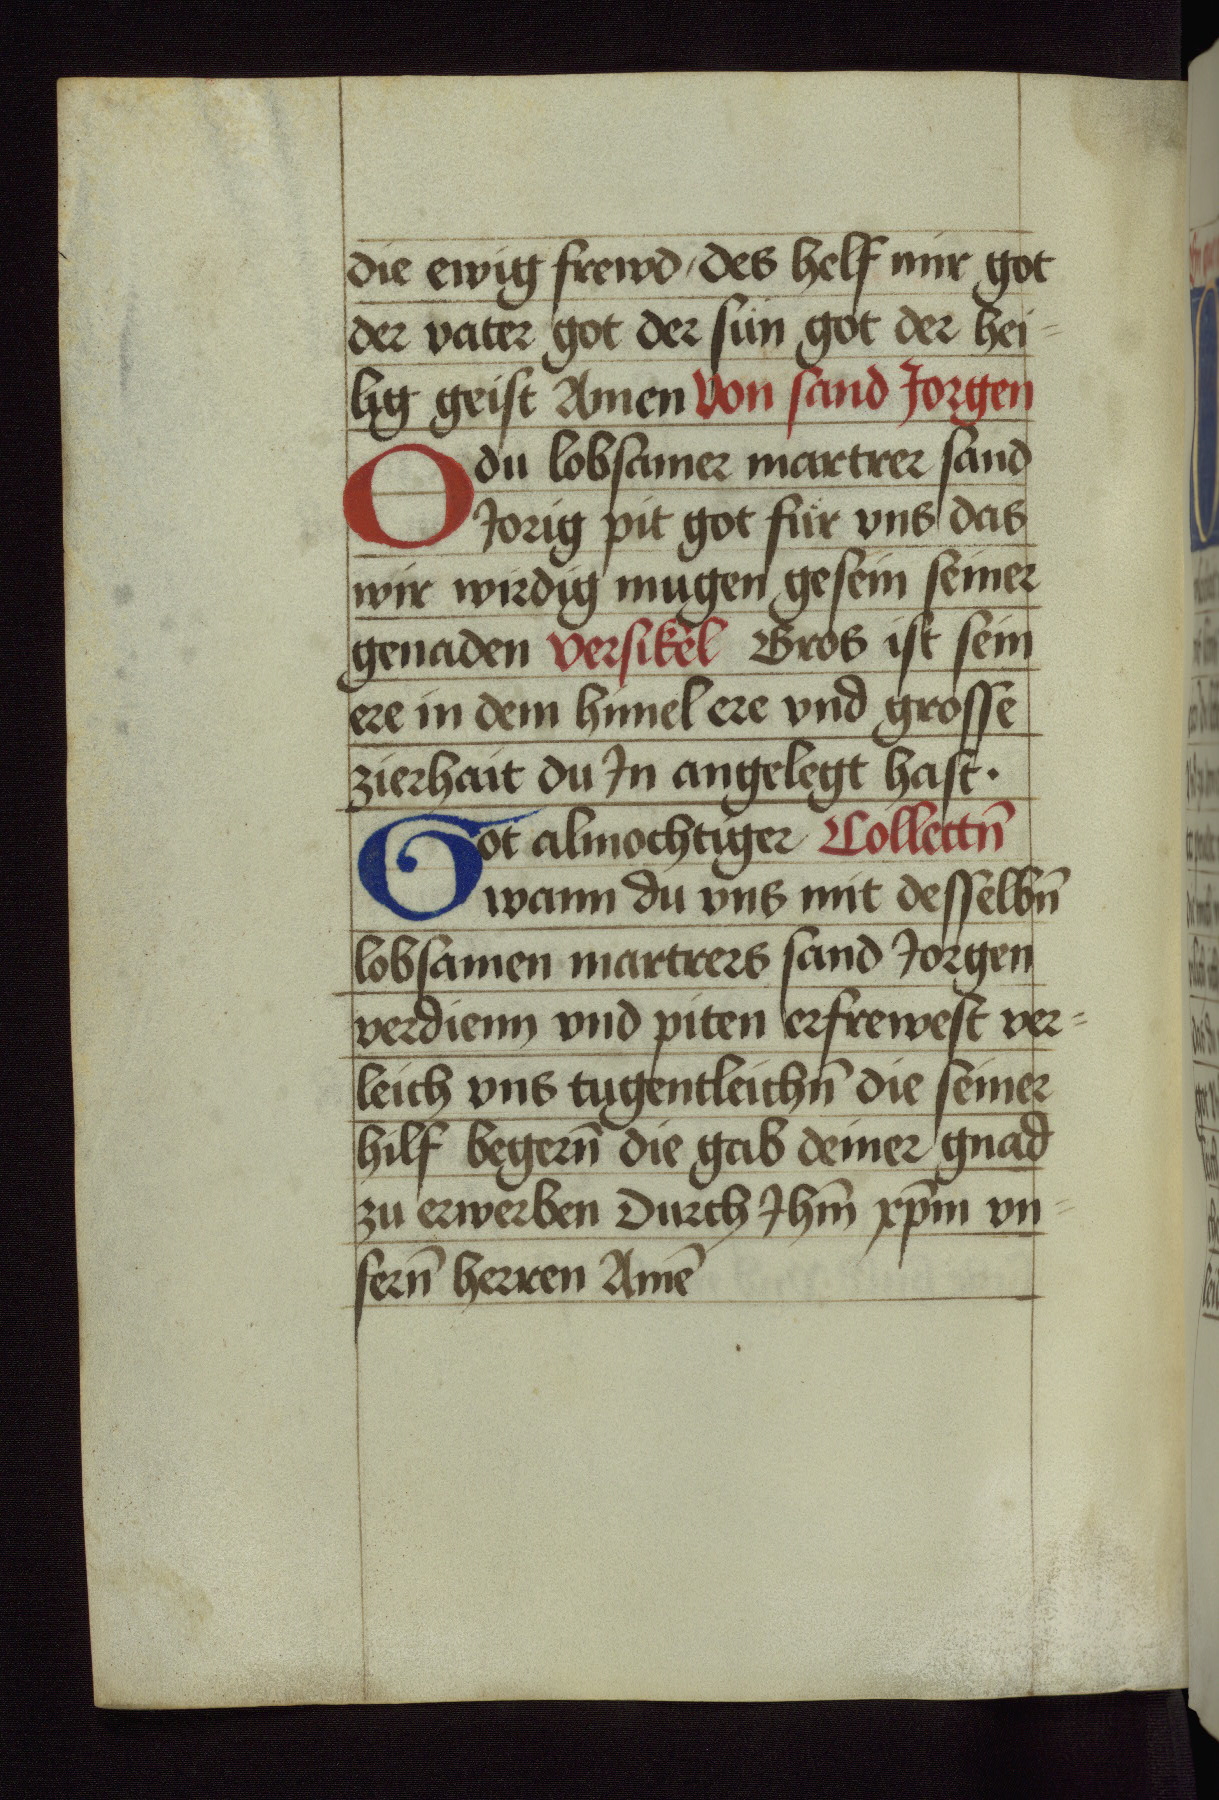 die ewig frewd / des helf mir got
der vater got der sun got der hei=
lig geist Amen Von sand Jorgen
O du lobsamer martrer sand
Jorig pit got für vns das
wir wirdig mugen gesein seiner
genaden versikel Gros ist sein
ere in dem himel ere vnd grosse
zierhait du In angelegt hast.
Got almochtiger Collectn̄
wann du vns mit desselbn̄
lobsamen martrers sand Jorgen
verdienn vnd piten erfrewest ver=
leich vns tugentleichn̄ die seiner
hilf begern̄ die gab deiner gnad
zu erwerben Durch Jhm̄ xp̄m vn=
sern̄ herren Amē